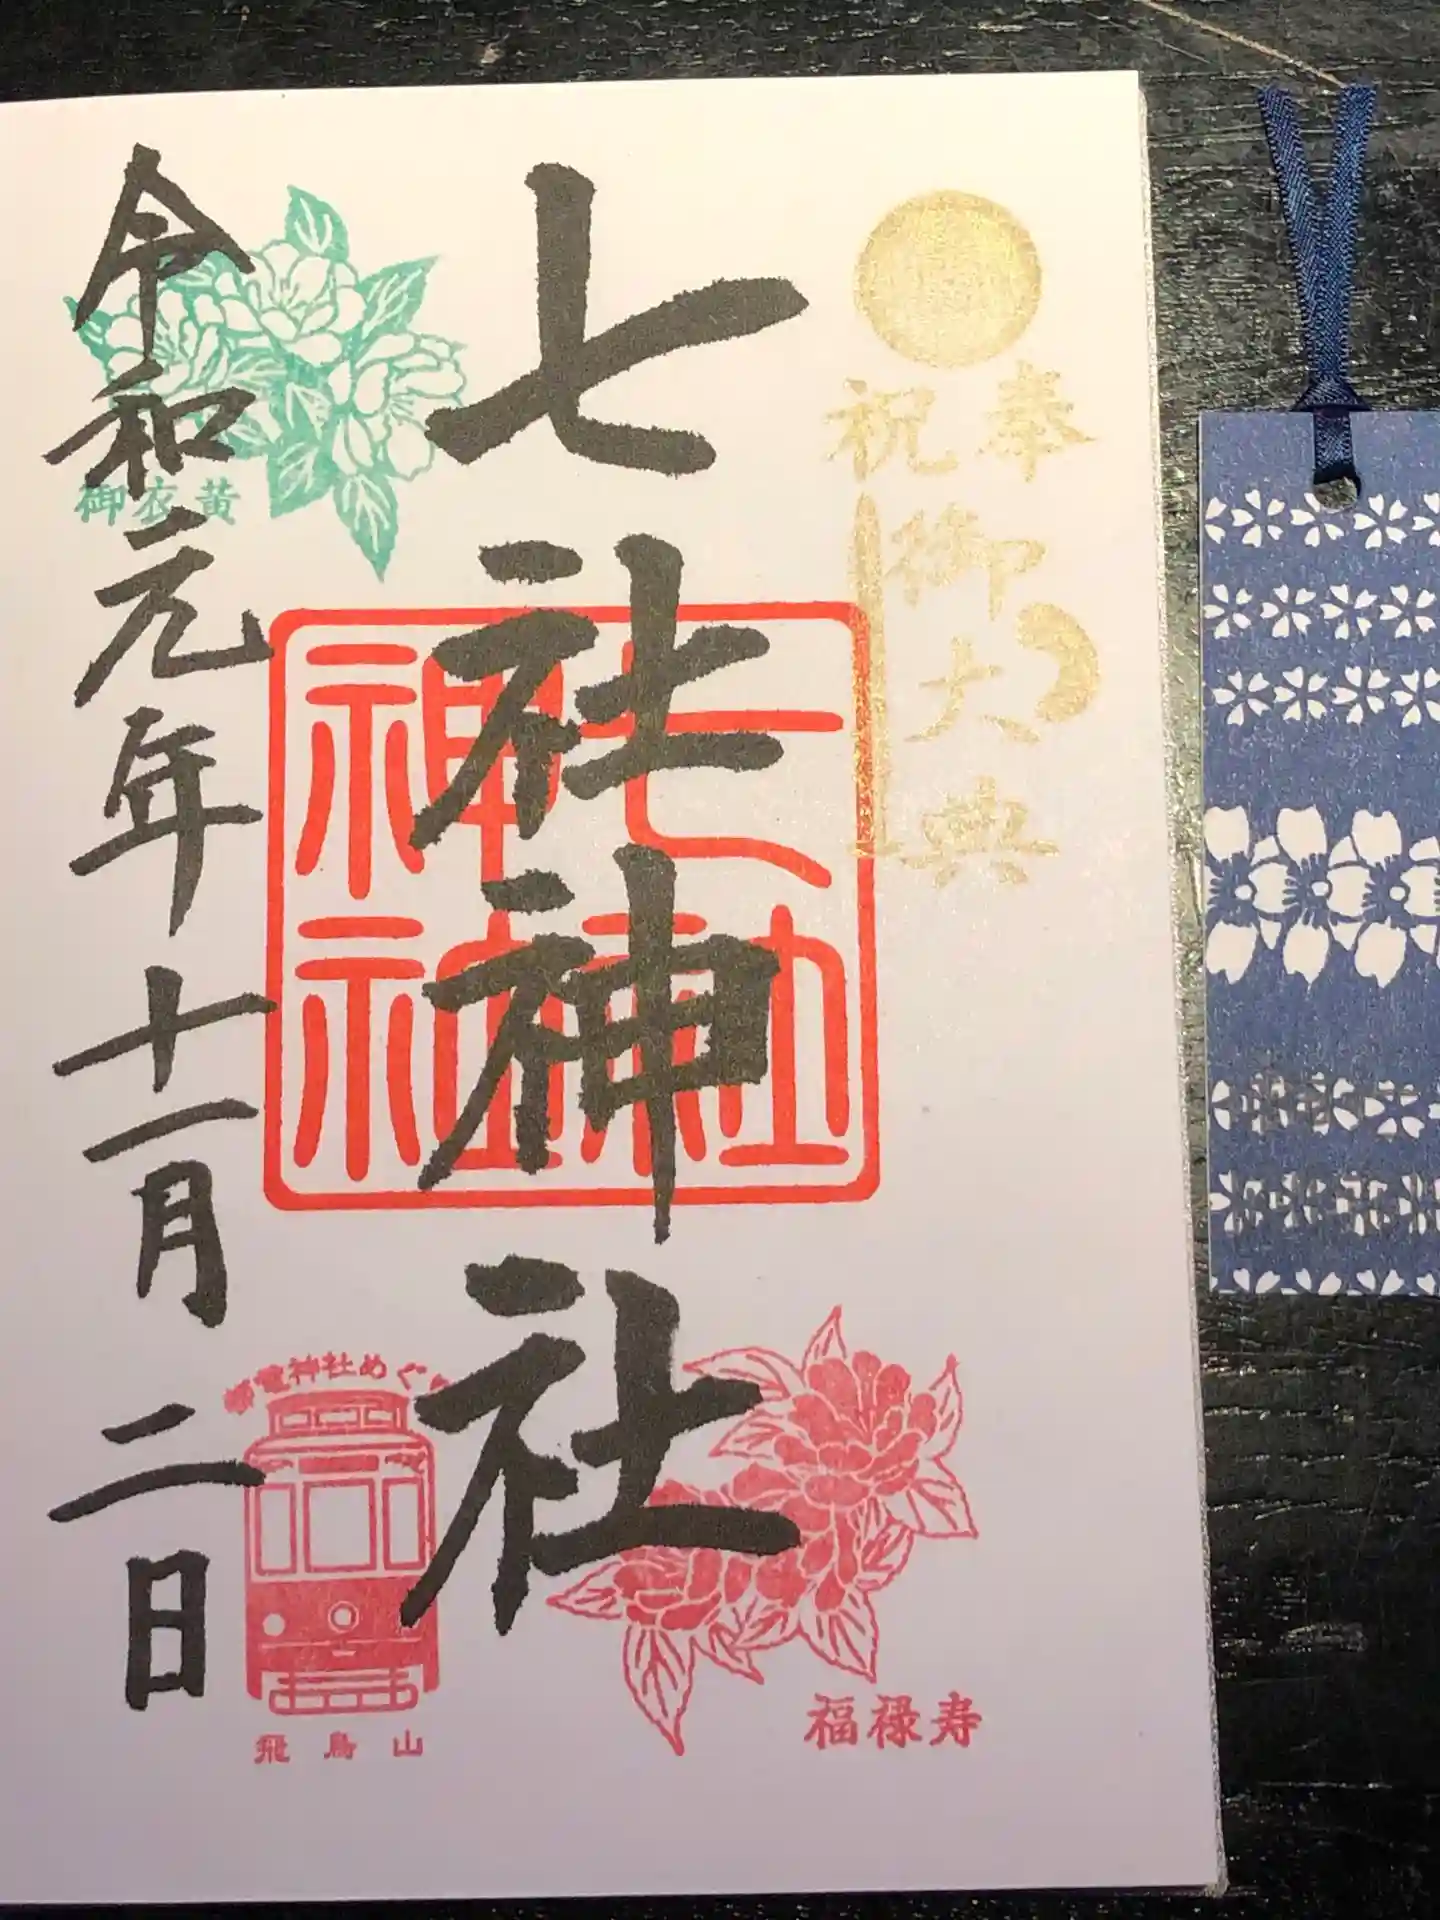 奉祝
御大典
七社神社
七社神社
令和元年十一月二日
御衣黄
電神社めぐ
飛鳥山
福禄寿